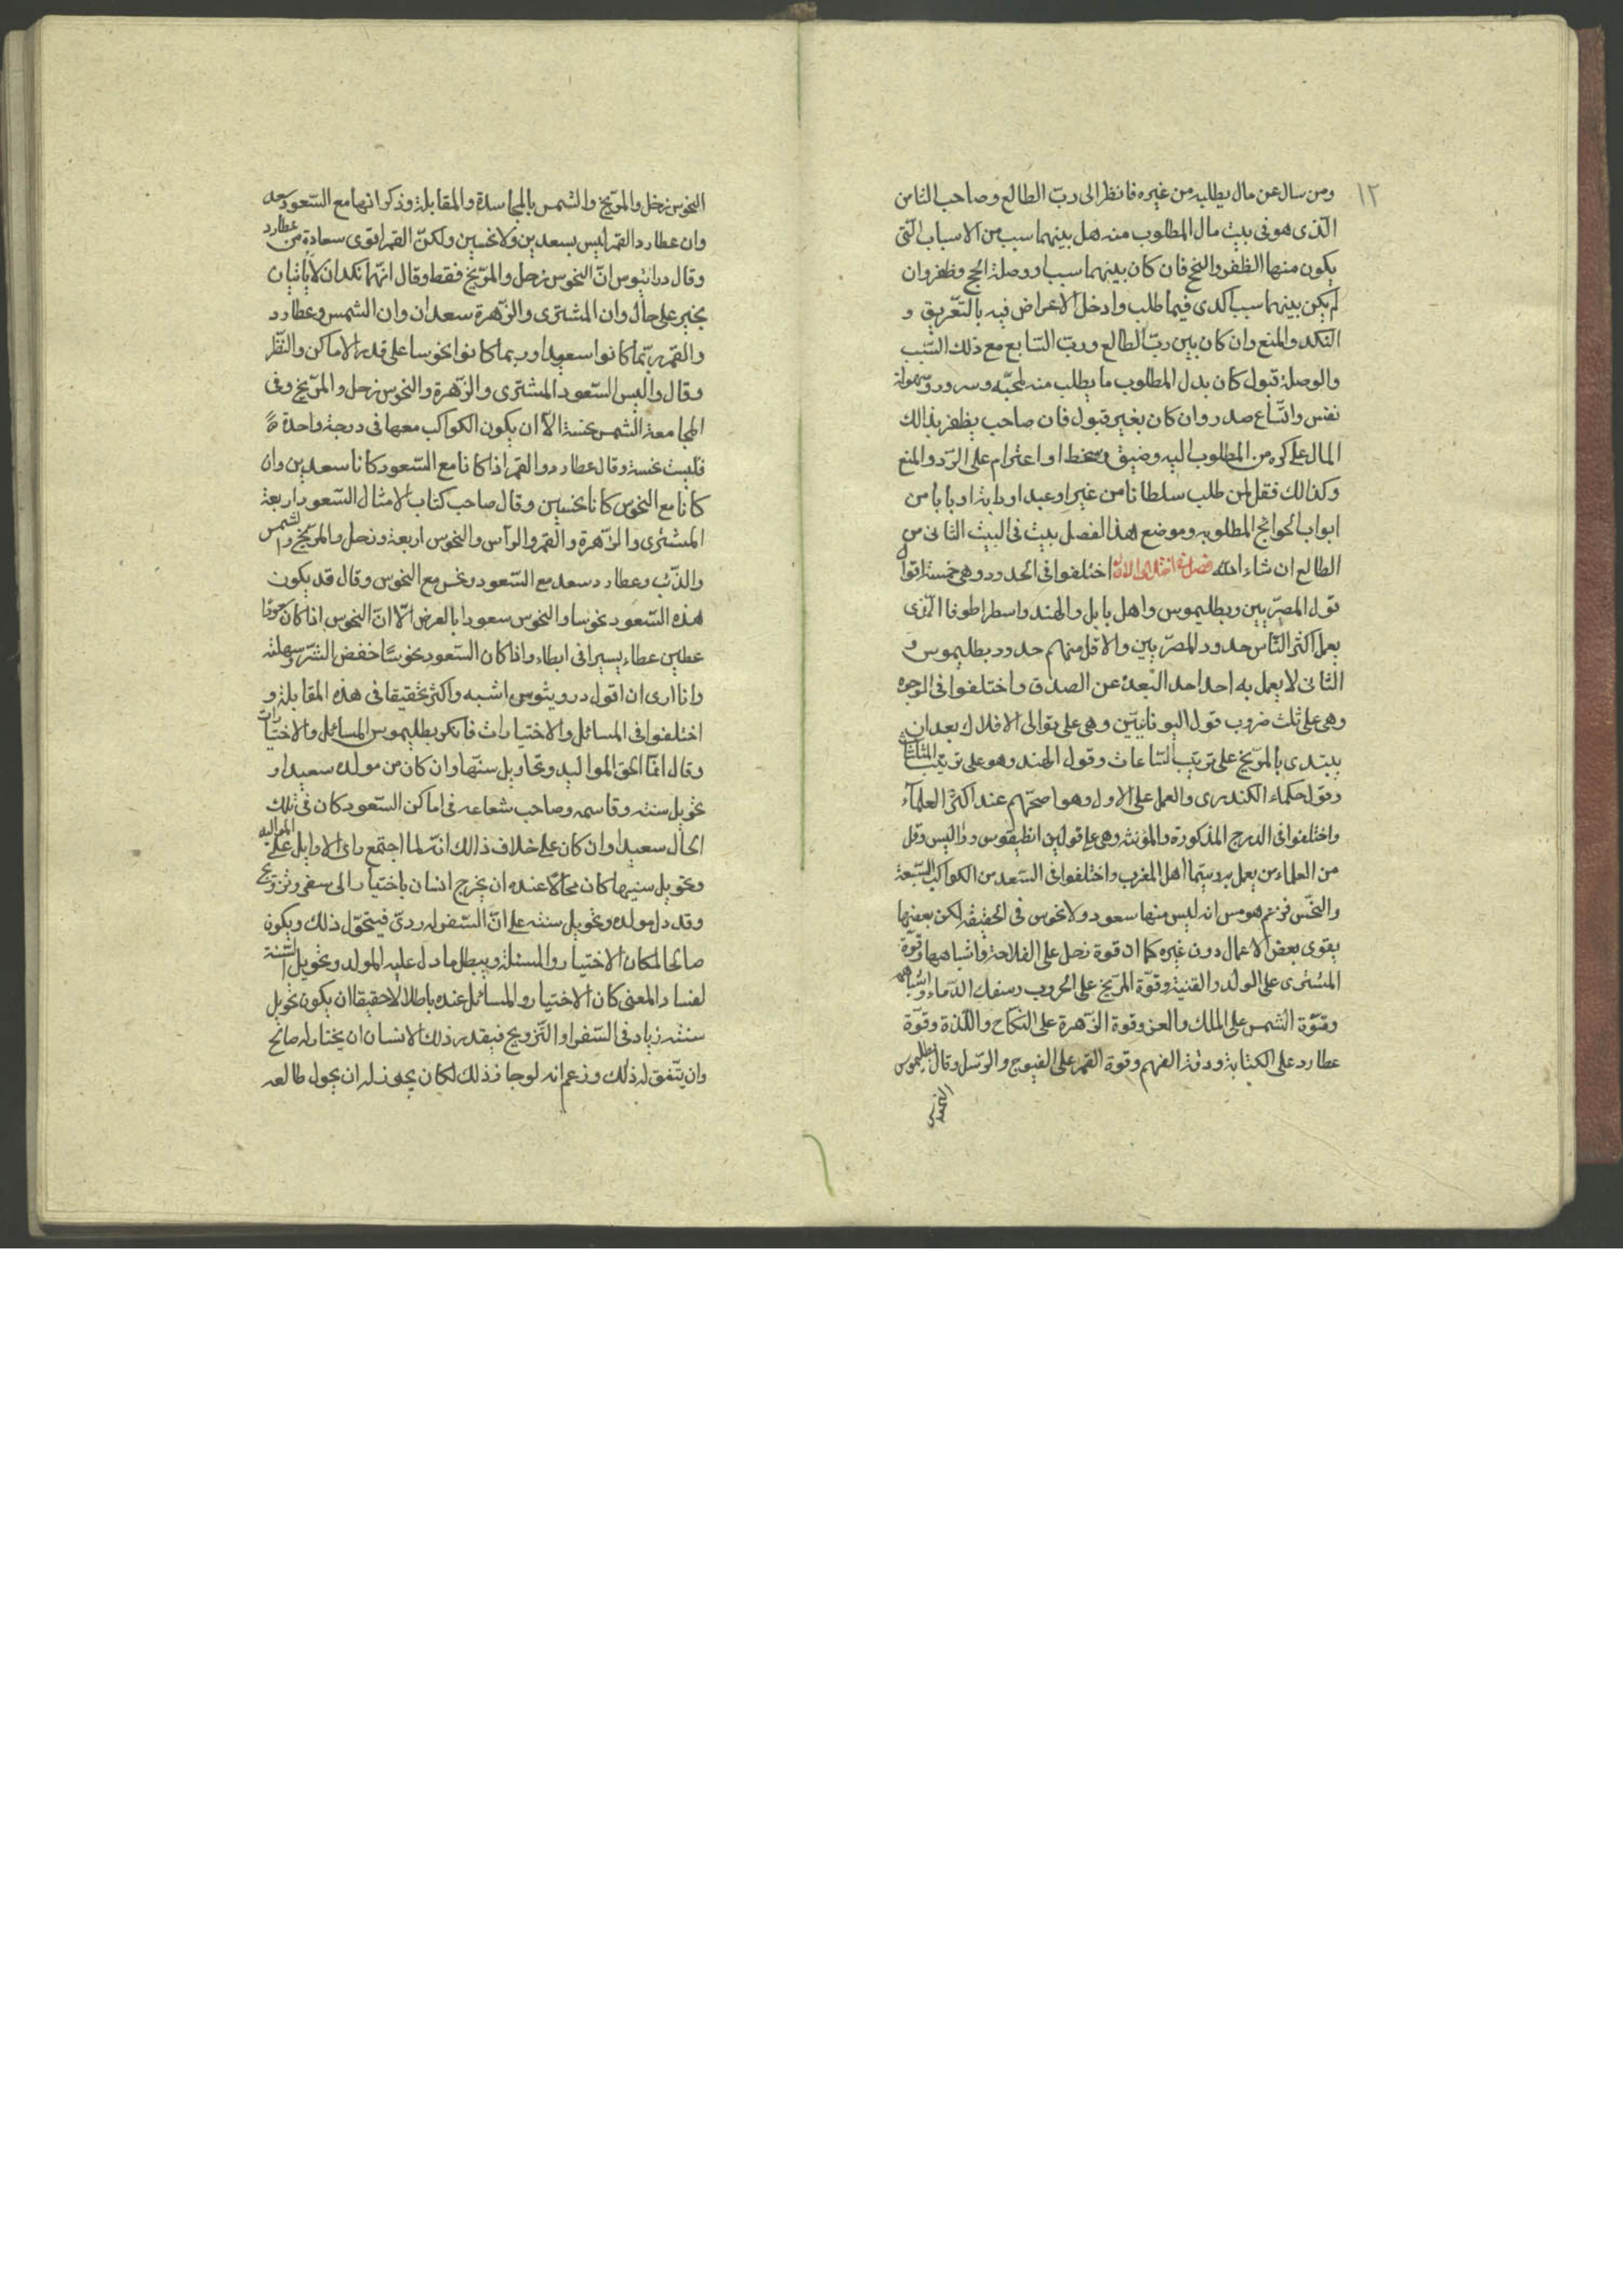 ١٢
ومن سال عن مال يطلبه من غيره فانظر الى ربّ الطالع وصاحب الثامن
الّذى هو فى بيت مال المطلوب منه هل بينهما سبب من الاسباب الّتى
يكون منها الظفر والنجح فان كان بينهما سبب او وصلة انجح وظفر وان
لم يكن بينهما سبب اكدى فيما طلب وادخل الاعراض فيه بالتعّريق و
النكد والمنع وان كان بين ربّ الطالع وربّ السّابع مع ذلك السّبب
والوصلة قبول كان بدل المطلوب ما يطلب منه لمحبّه وسرور وسهولة
نفس واتّساع صدر وان كان بغير قبول فان صاحب يظفر بذالك
المال على كره من المطلوب اليه وضيق وسخط او اعتزام على الرّد والمنع
وكذالك فقل لمن طلب سلطانا من غير او عبد او دابة او بابا من
ابواب الحوائج المطلوبه وموضع هذا الفصل بيت فى البيت الثانى من
الطالع ان شاء الله اختلفوا فى الحدود وهى خمسة اقوال
قول المصرّيين وبطليموس واهل بابل والهند واسطراطوفا الّذى
يعمل اكثر النّاس حدود المصرّيين والاقل منهم حدود بطليموس و
الثانى لا يعمل به احد احد البّعده عن الصدق واختلفوا فى الوجوه
وهى على ثلث ضروب قول اليونانييّن وهى على توالى الافلاك بعد ان
يبتدى بالمرّيخ على ترتيب السّاعات وقول الهند وهو على ترتيب المثلثات
وقول حكماء الكندرى والعمل على الاول وهو اصحّهم عند اكثر العلماء
واختلفوا فى الدرج المذكورة والمؤنثه وهى على قولين انطيقوس ودراليس وقل
من العلماء من يعمل به وسيّما اهل المغرب واختلفوا فى السّعد من الكواكب السّبعة
والنحّس فزعم هرمس انه ليس منها سعود ولا نحوس فى الحقيقه لكن بعضها
يقوى بعض الاعمال دون غيره كما ان قوة زحل على الفلاحة واشباهها وقوّة
المشترى على الولد والقنية وقوّة المرّيخ على الحروب وسفك الدّماء واشباهه
وقوّة الشمس على الملك والعز وقوة الزّهرة على النّكاح واللّذة وقوّة
عطارد على الكتابة ودقة الفهم وقوة القمر على الفيوج والرّسل وقال بطليموس
النحوس
النحوس زحل والمرّيخ والشمس بالمجاسدة والمقابلة وذكر انها مع السّعود سعد
وان عطارد القمر ليس بسعدين ولا نحسين ولكنّ القمر اقوى سعادة من عطارد
وقال درانيوس انّ النحوس زحل والمرّيخ فقط وقال انّهما نكدان لا ياتيان
بخير على حال وان المشترى والزّهرة سعدان وان الشمس وعطارد
والقمر ربّما كانوا سعودا وربما كانوا نحوسا على قدر الاماكن والنّظر
وقال واليس السّعود المشترى والزّهرة والنحوس زحل والمرّيخ وفى
المجامعة الشمس نحسة الا ان يكون الكواكب معها فى درجة واحدة
فليست نحسة وقال عطارد والقمر اذا كانا مع السّعود كانا سعدين وان
كانا مع النحوس كانا نحسين وقال صاحب كتاب الامثال السّعود اربعة
المشترى والزّهرة والقمر والرأس والنحوس اربعة زحل والمرّيخ والشمس
والذّنب وعطارد سعد مع السّعود ونحس مع النحوس وقال قد يكون
هذه السّعود نحوسا والنحوس سعودا بالعرض الّا انّ النحوس اذا كان
عطين عطاء يسيرا فى ابطاء واذا كان السّعود نحوسًا خفض الشّر وسهلته
وانا ارى ان اقول دروثيوس اشبه واكثر تحقيقا فى هذه المقابلة و
اختلفوا فى المسائل والاختيارات فانكر بطليموس المسائل والاختيارات
وقال انمّا الحق المواليد وتحاويل سنّها وان كان من مولده سعيدا و
تحويل سنته وقاسمه وصاحب شعاعه فى اماكن السّعود كان فى تلك
الحال سعيدا وان كان على خلاف ذالك انّه لما اجتمع راى الاوايل على المواليد
وتحويل سنيها كان محالًا عنده ان يخرج انسان باختيار الى سفر وتزويج
وقد دل مولده وتحويل سنته على انّ السّفر له ردىّ فيتحوّل ذلك ويكون
صالحا لمكان الاختيار والمسئلة ويبطل ما دل عليه المولد وتحويل السّنة
لفساد المعنى كان الاختيار والمسائل عنده باطلا لا حقيقا ان يكون تحويل
سنته زياد فى السّفر او التّزويج فيقدر ذلك الانسان ان يختار له صالح
وان يتّفق له ذلك وزعم انه لو جاز ذلك لكان يجوز له ان يحول طالعه